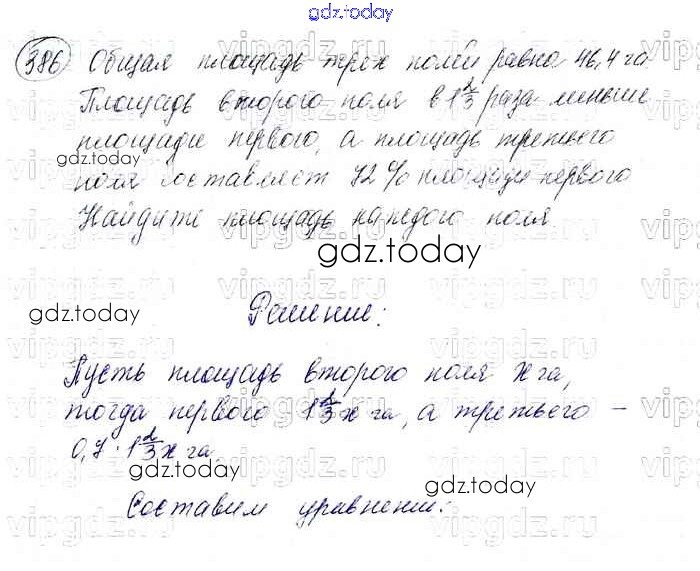 gdz.today
386 Общая площадь трех полей равна 46,4 га
Площадь второго поля в 1 2/3 раза меньше
площади первого, а площадь третьего
поля составляет 72 % площади первого
Найдите площадь каждого поля
gdz.today
gdz.today
gdz.today
Решение:
Пусть площадь второго поля х га,
тогда первого 1 2/3 х га, а третьего –
0,7 · 1 2/3 х га
gdz.today
gdz.today
Составим уравнение: